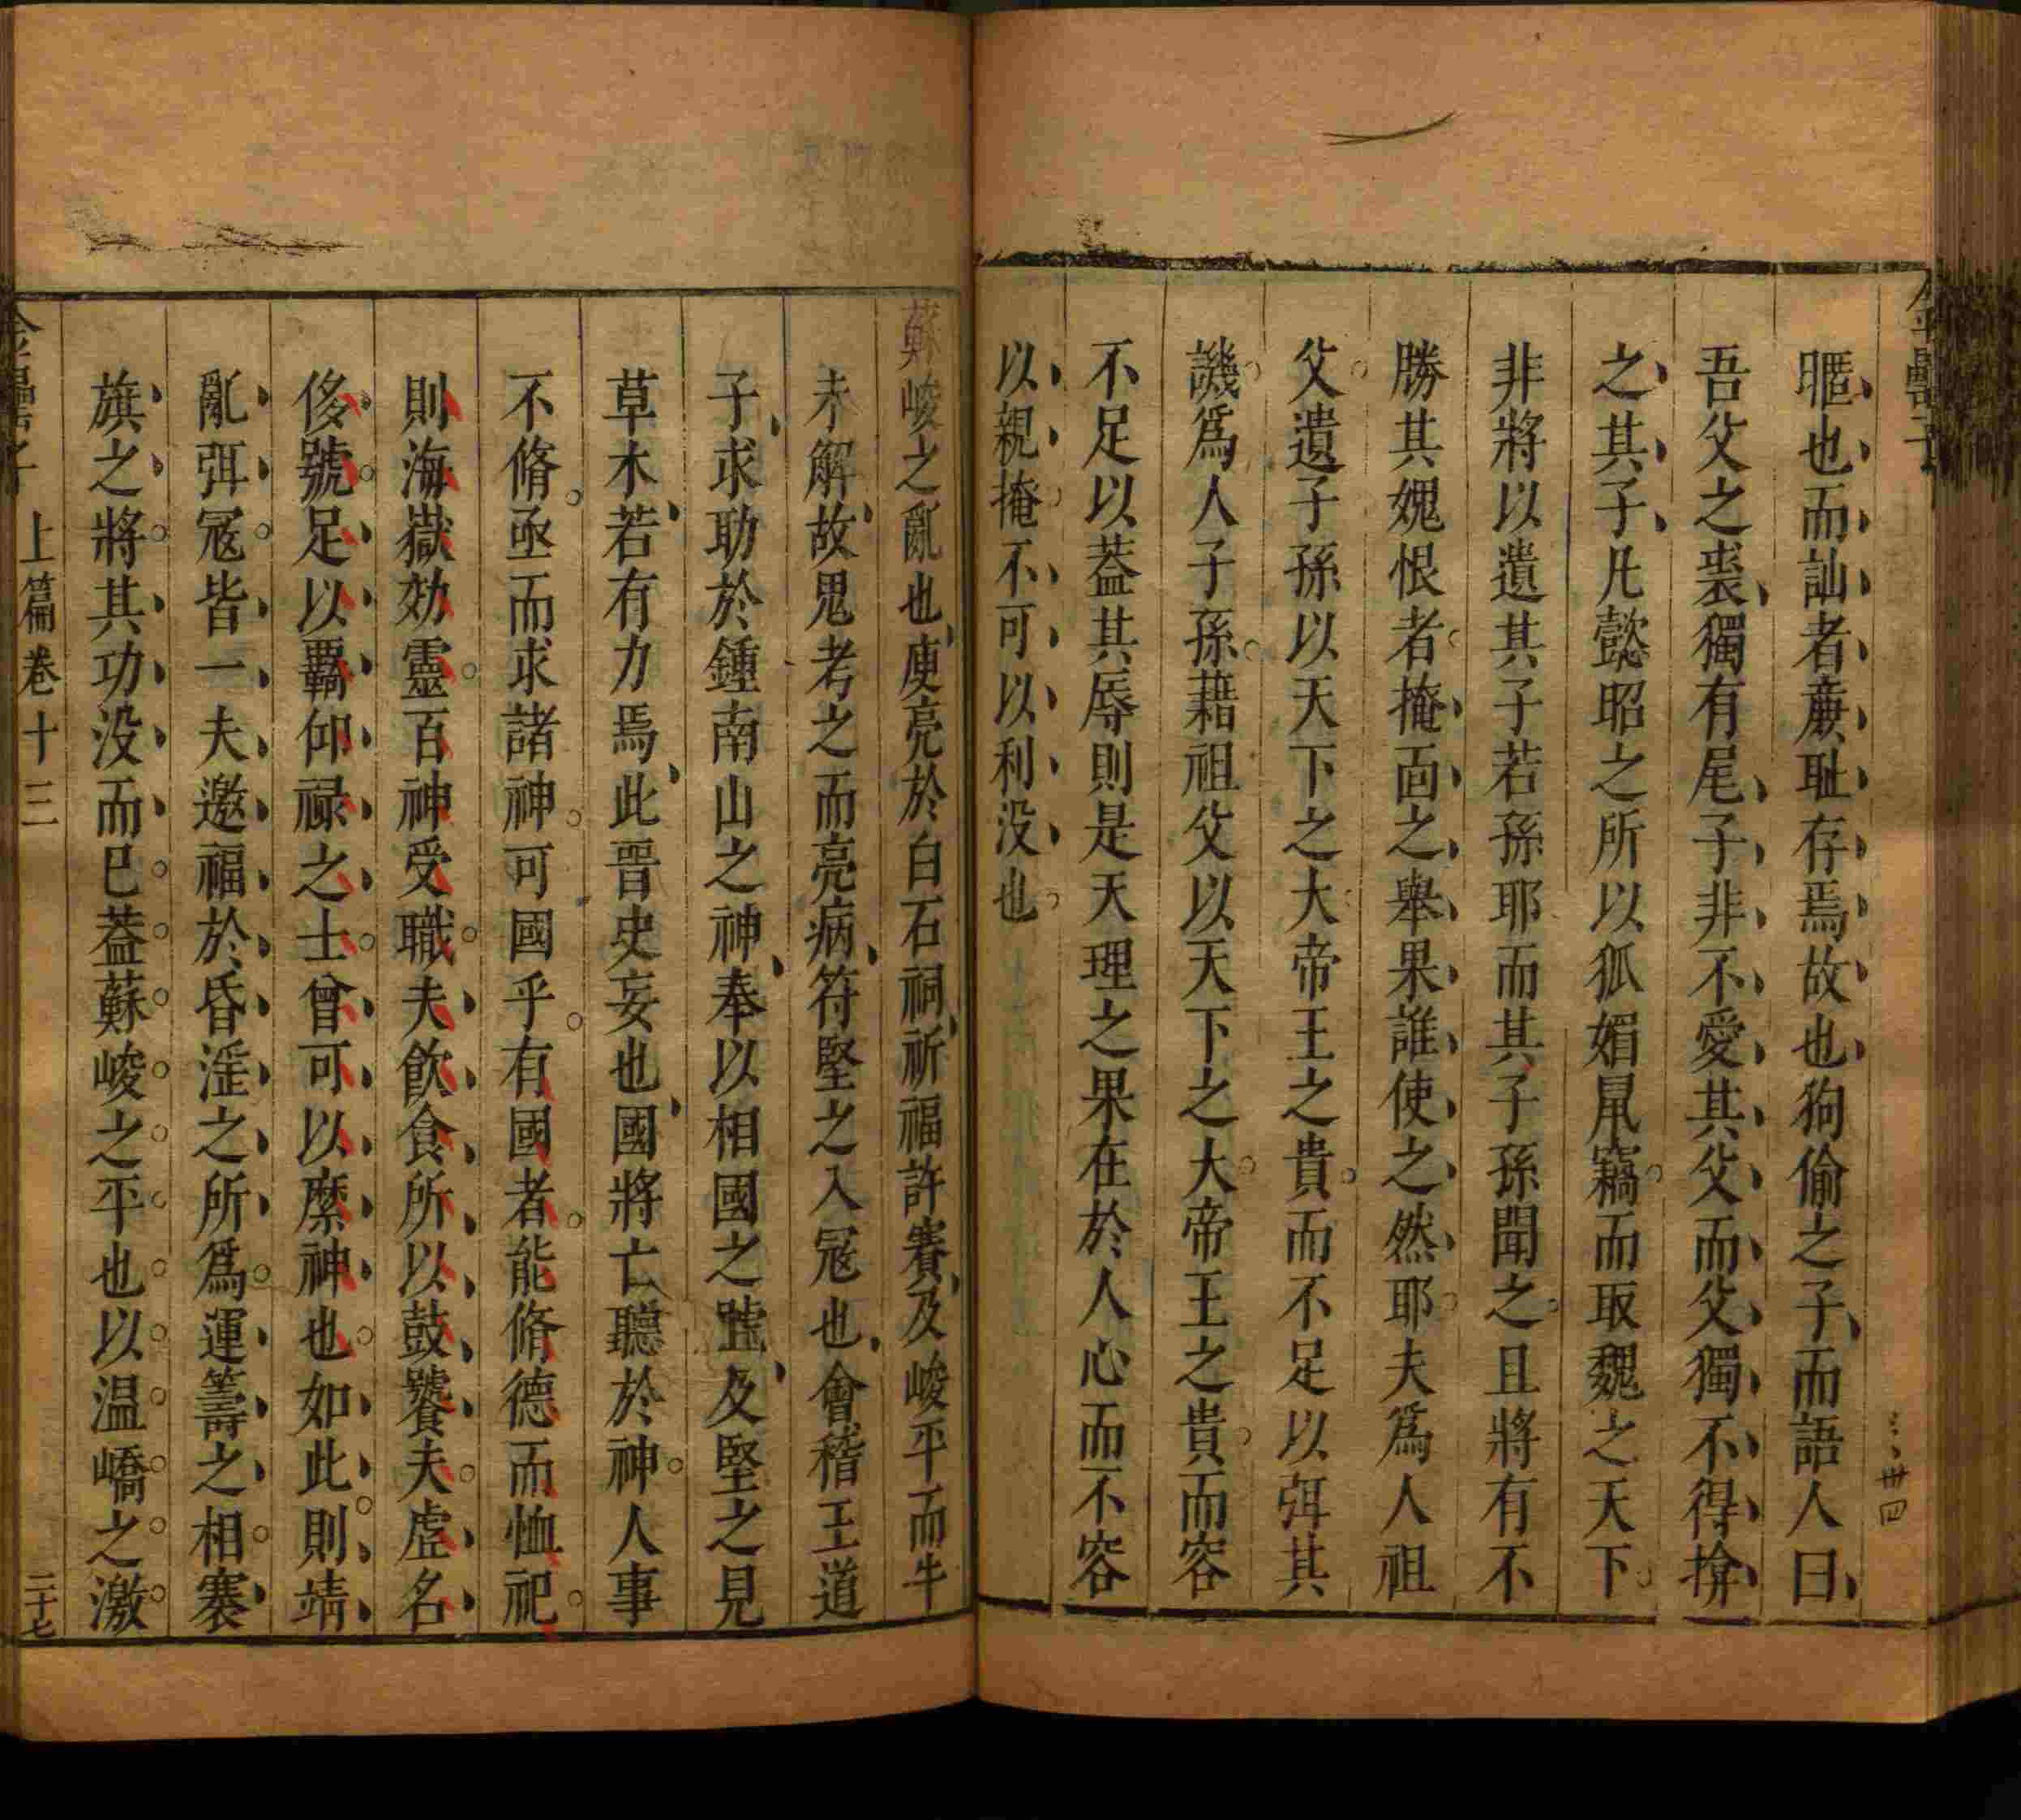 暱也而訕者蔽耻存焉故也狗偷之子而語人曰
吾父之裘獨有尾子非不愛其父而父獨不得揜
之其子凡懿昭之所以狐媚鼠竊而取魏之天下
非將以遺其子若孫耶而其子孫聞之且將有不
勝其媿恨者掩面之舉果誰使之然耶夫爲人祖
父遺子孫以天下之大帝王之貴而不足以弭其
譏爲人子孫藉祖父以天下之大帝王之貴而容
不足以蓋其辱則是天理之果在於人心而不容
以親掩不可以利没也
蘇峻之亂也庾亮於白石祠祈福許賽及峻平而牛
未解故鬼考之而亮病符堅之入冦也會稽王道
子求助於鍾南山之神奉以相國之號及堅之見
草木若有力焉此晉史妄也國將亡聽於神人事
不脩亟而求諸神可國乎有國者能脩德而恤祀
則海嶽効靈百神受職夫飲食所以鼓饕夫虛名
侈號足以覊仰禄之士曾可以縻神也如此則靖
亂弭冦皆一夫邀福於昏淫之所爲運籌之相搴
旗之將其功没而已蓋蘇峻之平也以温嶠之激
金罍子 上篇卷十三 二十七